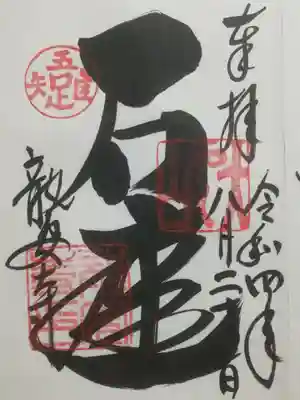 奉拝
令和四年
八月二十日
石庭
龍安寺
吾唯足知